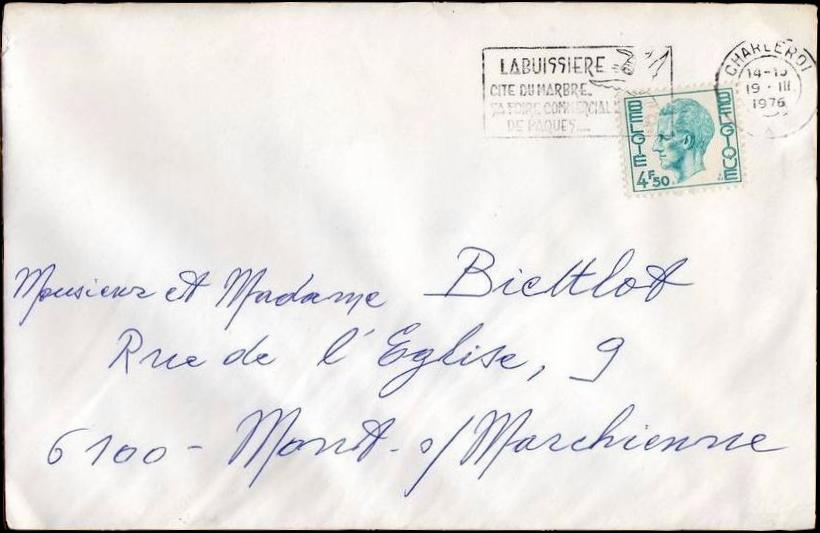 LABUISSIERE
CITE DU MARBRE
SA FOIRE COMMERCIALE
DE PAQUES...
CHARLEROI
14-15
19 · III
1976
BELGIE BELGIQUE
4F50
Monsieur et Madame Biettlot
Rue de l'Eglise, 9
6100 - Mont-s/Marchienne